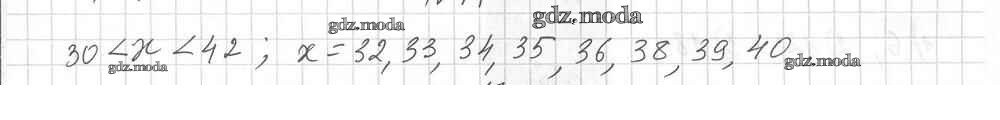 gdz.moda gdz.moda
30 < x < 42 ; x = 32, 33, 34, 35, 36, 38, 39, 40
gdz.moda gdz.moda